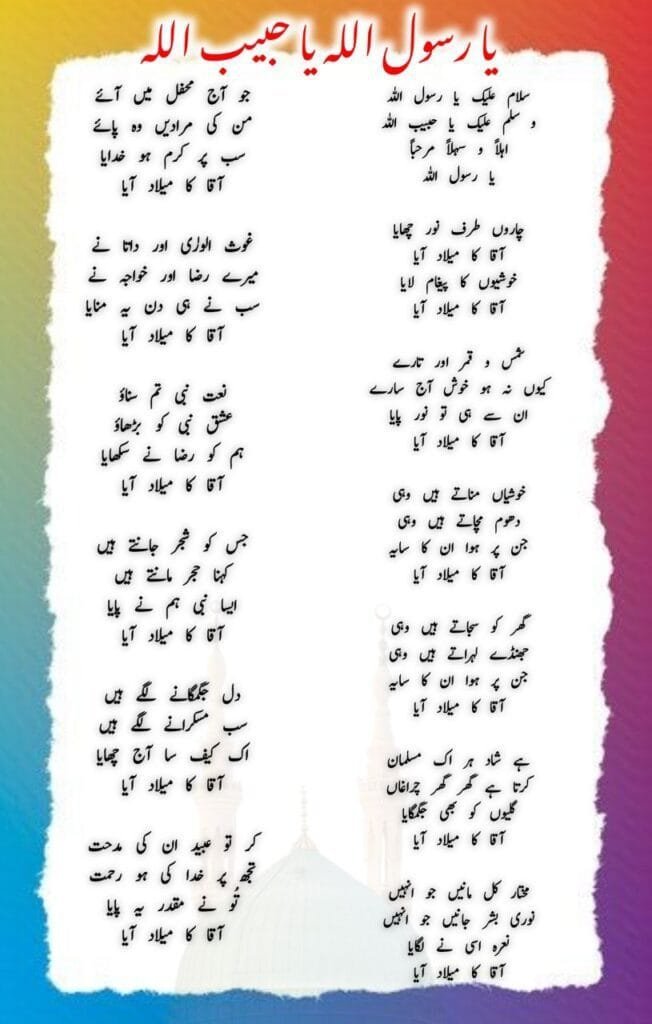 یا رسول اللہ یا حبیب اللہ
سلام علیک یا رسول اللہ
و سلم علیک یا حبیب اللہ
اہلاً و سہلاً مرحباً
یا رسول اللہ
چاروں طرف نور چھایا
آقا کا میلاد آیا
خوشیوں کا پیغام لایا
آقا کا میلاد آیا
شمس و قمر اور تارے
کیوں نہ ہو خوش آج سارے
ان سے ہی تو نور پایا
آقا کا میلاد آیا
خوشیاں مناتے ہیں وہی
دھوم مچاتے ہیں وہی
جن پر ہوا ان کا سایہ
آقا کا میلاد آیا
گھر کو سجاتے ہیں وہی
جھنڈے لہراتے ہیں وہی
جن پر ہوا ان کا سایہ
آقا کا میلاد آیا
ہے شاد ہر اک مسلمان
کرتا ہے گھر گھر چراغاں
گلیوں کو بھی جگمگایا
آقا کا میلاد آیا
مختار کل مانیں جو انہیں
نوری بشر جانیں جو انہیں
نعرہ اسی نے لگایا
آقا کا میلاد آیا
جو آج محفل میں آئے
من کی مرادیں وہ پائے
سب پر کرم ہو خدایا
آقا کا میلاد آیا
غوث الورٰی اور داتا نے
میرے رضا اور خواجہ نے
سب نے ہی دن یہ منایا
آقا کا میلاد آیا
نعت نبی تم سناؤ
عشق نبی کو بڑھاؤ
ہم کو رضا نے سکھایا
آقا کا میلاد آیا
جس کو شجر جانتے ہیں
کہنا حجر مانتے ہیں
ایسا نبی ہم نے پایا
آقا کا میلاد آیا
دل جگمگانے لگے ہیں
سب مسکرانے لگے ہیں
اک کیف سا آج چھایا
آقا کا میلاد آیا
کر تو عبید ان کی مدحت
تجھ پر خدا کی ہو رحمت
تُو نے مقدر یہ پایا
آقا کا میلاد آیا